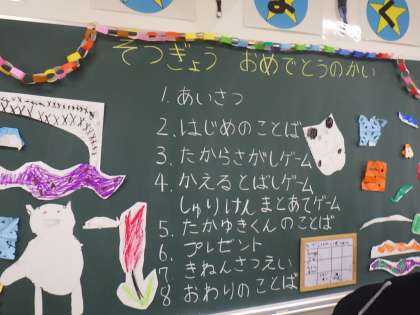 そつぎょう おめでとうのかい
1. あいさつ
2. はじめのことば
3. たからさがしゲーム
4 かえるとばしゲーム
しゅりけんまとあてゲーム
5. たかゆきくんのことば
6. プレゼント
7 きねんさつえい
8 おわりのことば